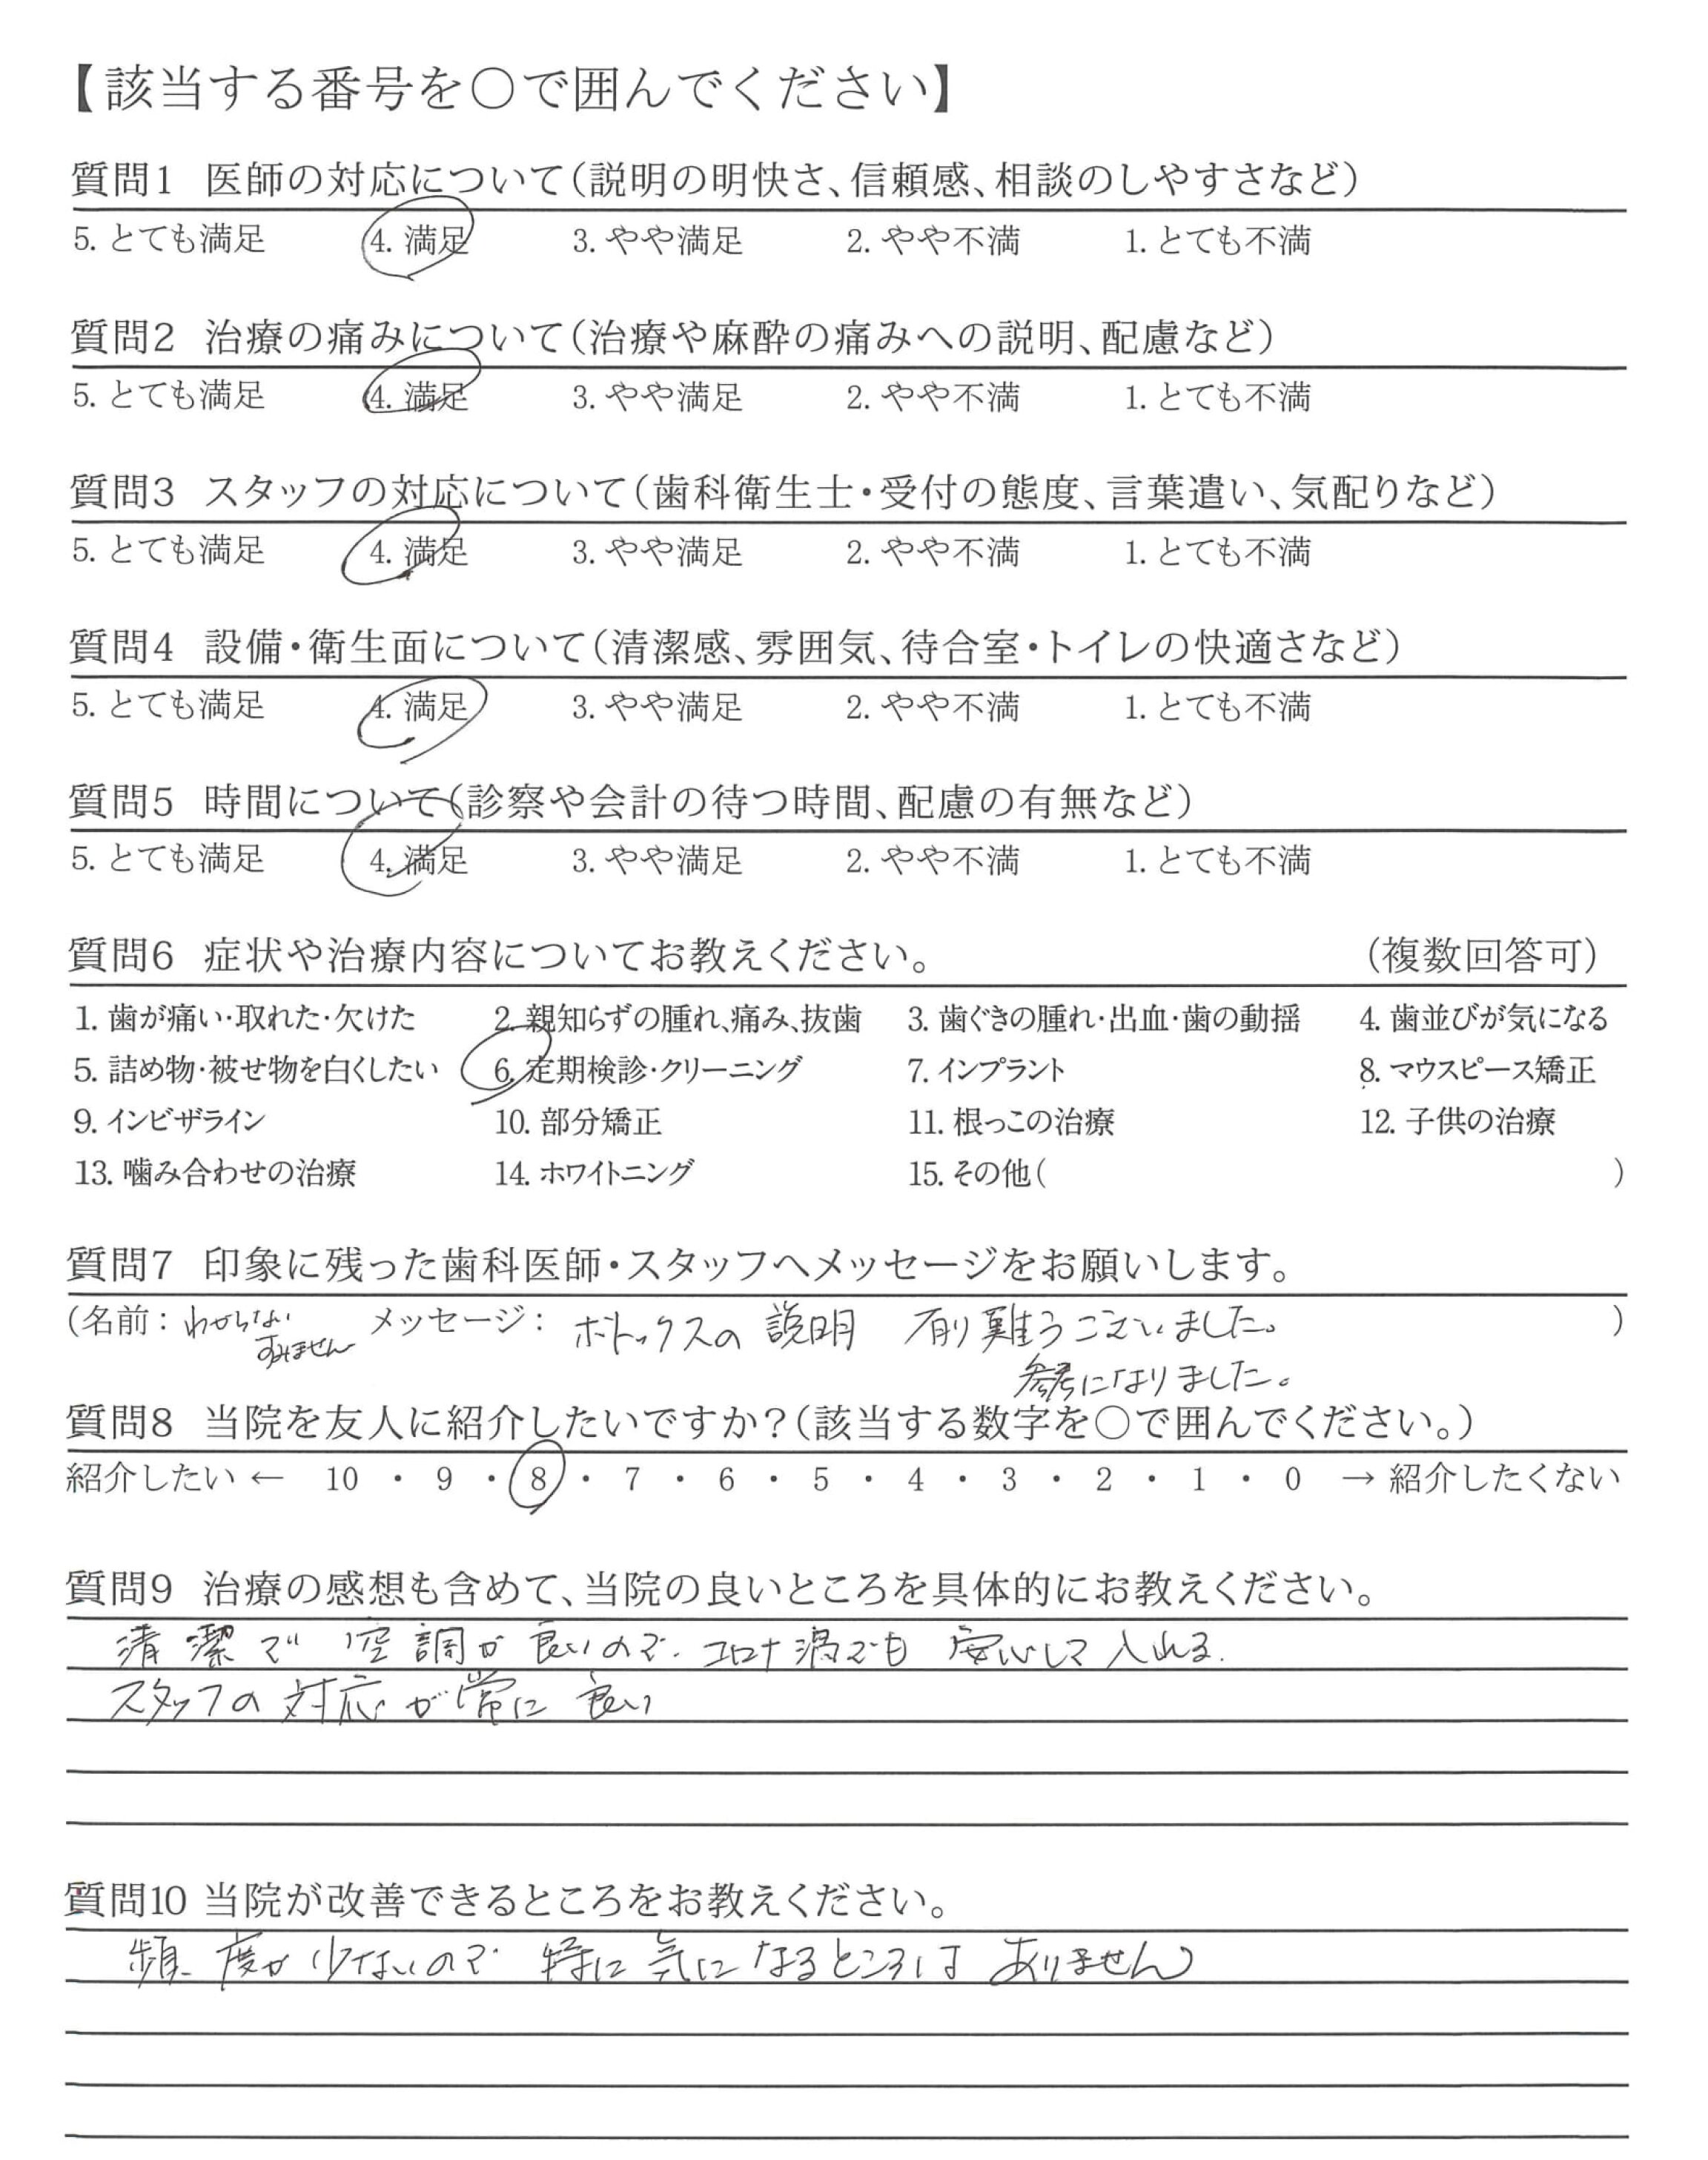 【該当する番号を○で囲んでください】
質問1 医師の対応について(説明の明快さ、信頼感、相談のしやすさなど)
5. とても満足 4. 満足 3. やや満足 2. やや不満 1. とても不満
質問2 治療の痛みについて(治療や麻酔の痛みへの説明、配慮など)
5. とても満足 4. 満足 3. やや満足 2. やや不満 1. とても不満
質問3 スタッフの対応について(歯科衛生士・受付の態度、言葉遣い、気配りなど)
5. とても満足 4. 満足 3. やや満足 2. やや不満 1. とても不満
質問4 設備・衛生面について(清潔感、雰囲気、待合室・トイレの快適さなど)
5. とても満足 4. 満足 3. やや満足 2. やや不満 1. とても不満
質問5 時間について(診察や会計の待つ時間、配慮の有無など)
5. とても満足 4. 満足 3. やや満足 2. やや不満 1. とても不満
質問6 症状や治療内容についてお教えください。 (複数回答可)
1. 歯が痛い・取れた・欠けた 2. 親知らずの腫れ、痛み、抜歯 3. 歯ぐきの腫れ・出血・歯の動揺 4. 歯並びが気になる
5. 詰め物・被せ物を白くしたい 6. 定期検診・クリーニング 7. インプラント 8. マウスピース矯正
9. インビザライン 10. 部分矯正 11. 根っこの治療 12. 子供の治療
13. 噛み合わせの治療 14. ホワイトニング 15. その他( )
質問7 印象に残った歯科医師・スタッフへメッセージをお願いします。
(名前: わからない メッセージ: ボトックスの 説明 有り難うございました。 )
すみません
参考になりました。
質問8 当院を友人に紹介したいですか?(該当する数字を○で囲んでください。)
紹介したい ← 10 ・ 9 ・ 8 ・ 7 ・ 6 ・ 5 ・ 4 ・ 3 ・ 2 ・ 1 ・ 0 → 紹介したくない
質問9 治療の感想も含めて、当院の良いところを具体的にお教えください。
清潔で 空調が良いので、コロナ渦でも 安心して入れる.
スタッフの対応が常に良い
質問10 当院が改善できるところをお教えください。
頻度が少ないので 特に気になるところは ありません